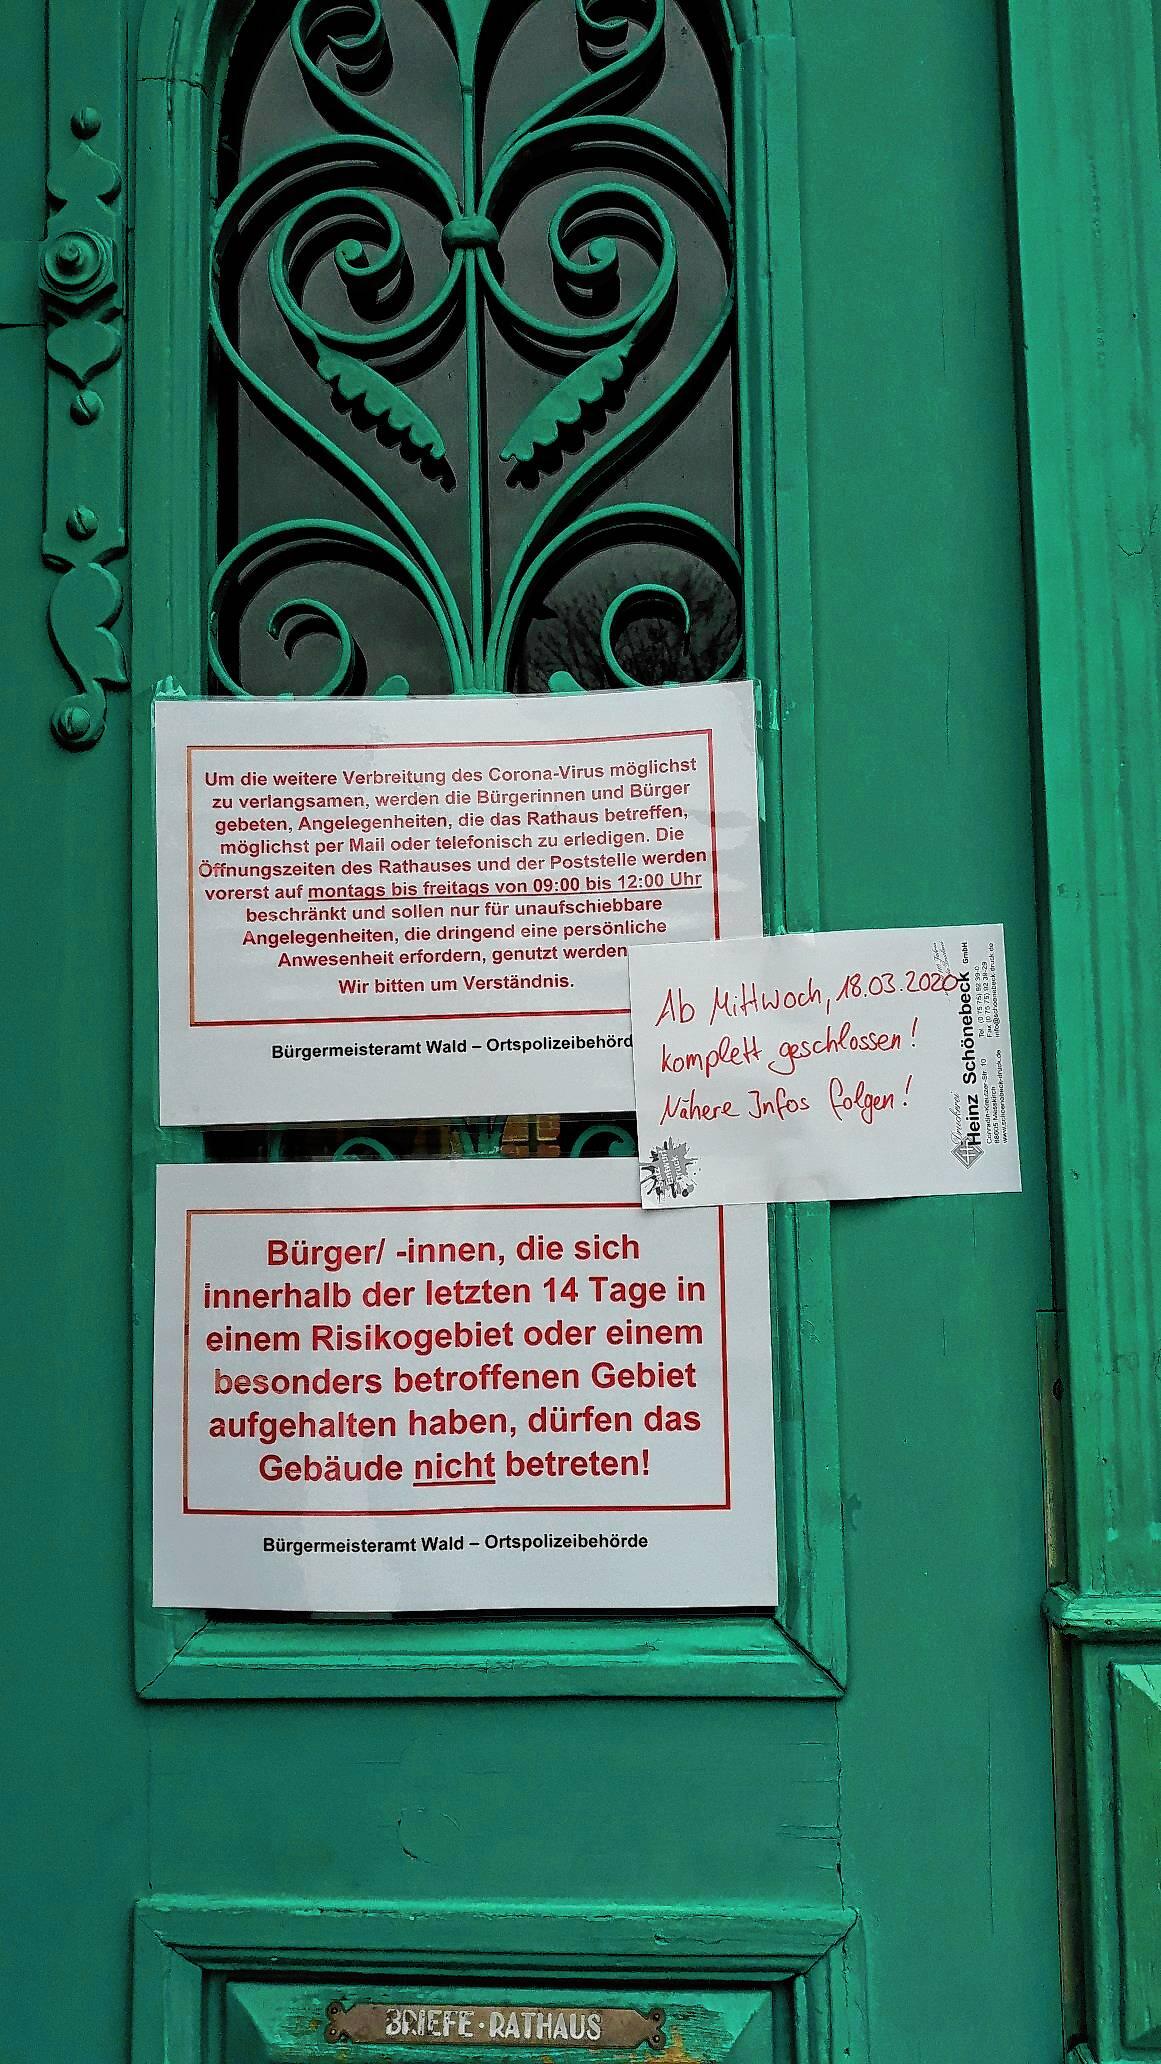 Um die weitere Verbreitung des Corona-Virus möglichst
zu verlangsamen, werden die Bürgerinnen und Bürger
gebeten, Angelegenheiten, die das Rathaus betreffen,
möglichst per Mail oder telefonisch zu erledigen. Die
Öffnungszeiten des Rathauses und der Poststelle werden
vorerst auf montags bis freitags von 09:00 bis 12:00 Uhr
beschränkt und sollen nur für unaufschiebbare
Angelegenheiten, die dringend eine persönliche
Anwesenheit erfordern, genutzt werden
Wir bitten um Verständnis.
Bürgermeisteramt Wald – Ortspolizeibehörd
Ab Mittwoch, 18.03.2020
komplett geschlossen!
Nähere Infos folgen!
Druckerei
Heinz Schönebeck GmbH
Conradin-Kreutzer-Str. 10
88605 Messkirch
www.schoenebeck-druck.de
info@schoenebeck-druck.de
Bürger/ -innen, die sich
innerhalb der letzten 14 Tage in
einem Risikogebiet oder einem
besonders betroffenen Gebiet
aufgehalten haben, dürfen das
Gebäude nicht betreten!
Bürgermeisteramt Wald – Ortspolizeibehörde
BRIEFE · RATHAUS